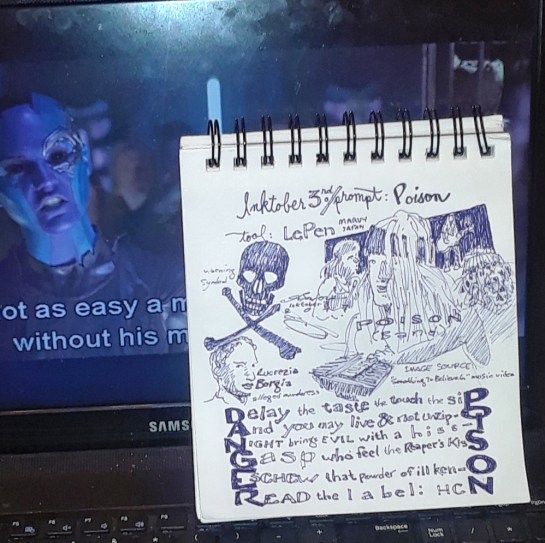 ot as easy a m
without his m
SAMS
Inktober 3rd prompt: Poison
tool: LePen MARVY JAPAN
warning symbol
POISON
Lucrezia Borgia
alleged murderess
IMAGE SOURCE:
"Something To Believe In" music video
DElay the taste the touch the si P
And you may live & not unzip- O
NIGHT bring EVIL with a hiss- I
asp who feel the Reaper's Kis S
ESCHEW that powder of ill ken- O
READ the label: HC N
Backspace
Num Lock